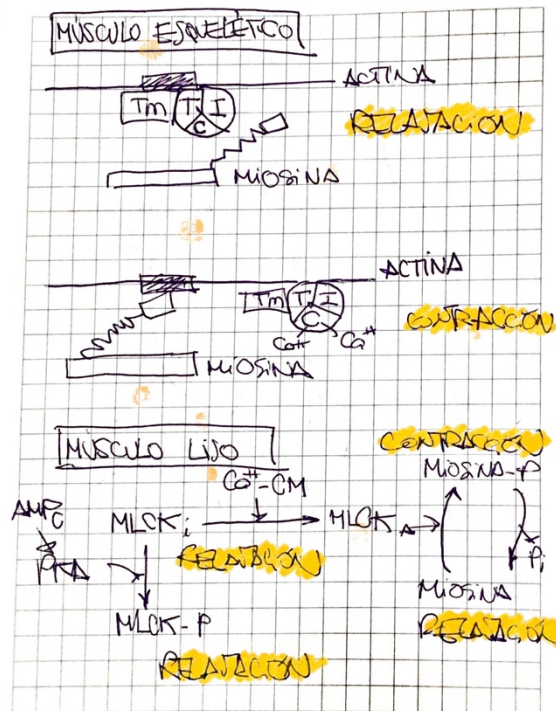 MÚSCULO ESQUELÉTICO
ACTINA
Tm T I
C
RELAJACION
MiOSiNA
ACTINA
Tm T I
C
Ca++ Ca++
CONTRACCIÓN
MiOSiNA
MÚSCULO LISO
CONTRACCIÓN
MiOSiNA-P
Ca++-CM
AMPc
MLCKi
MLCKA
RELAJACION
Pi
PKA
MiOSiNA
MLCK-P
RELAJACION
RELAJACION